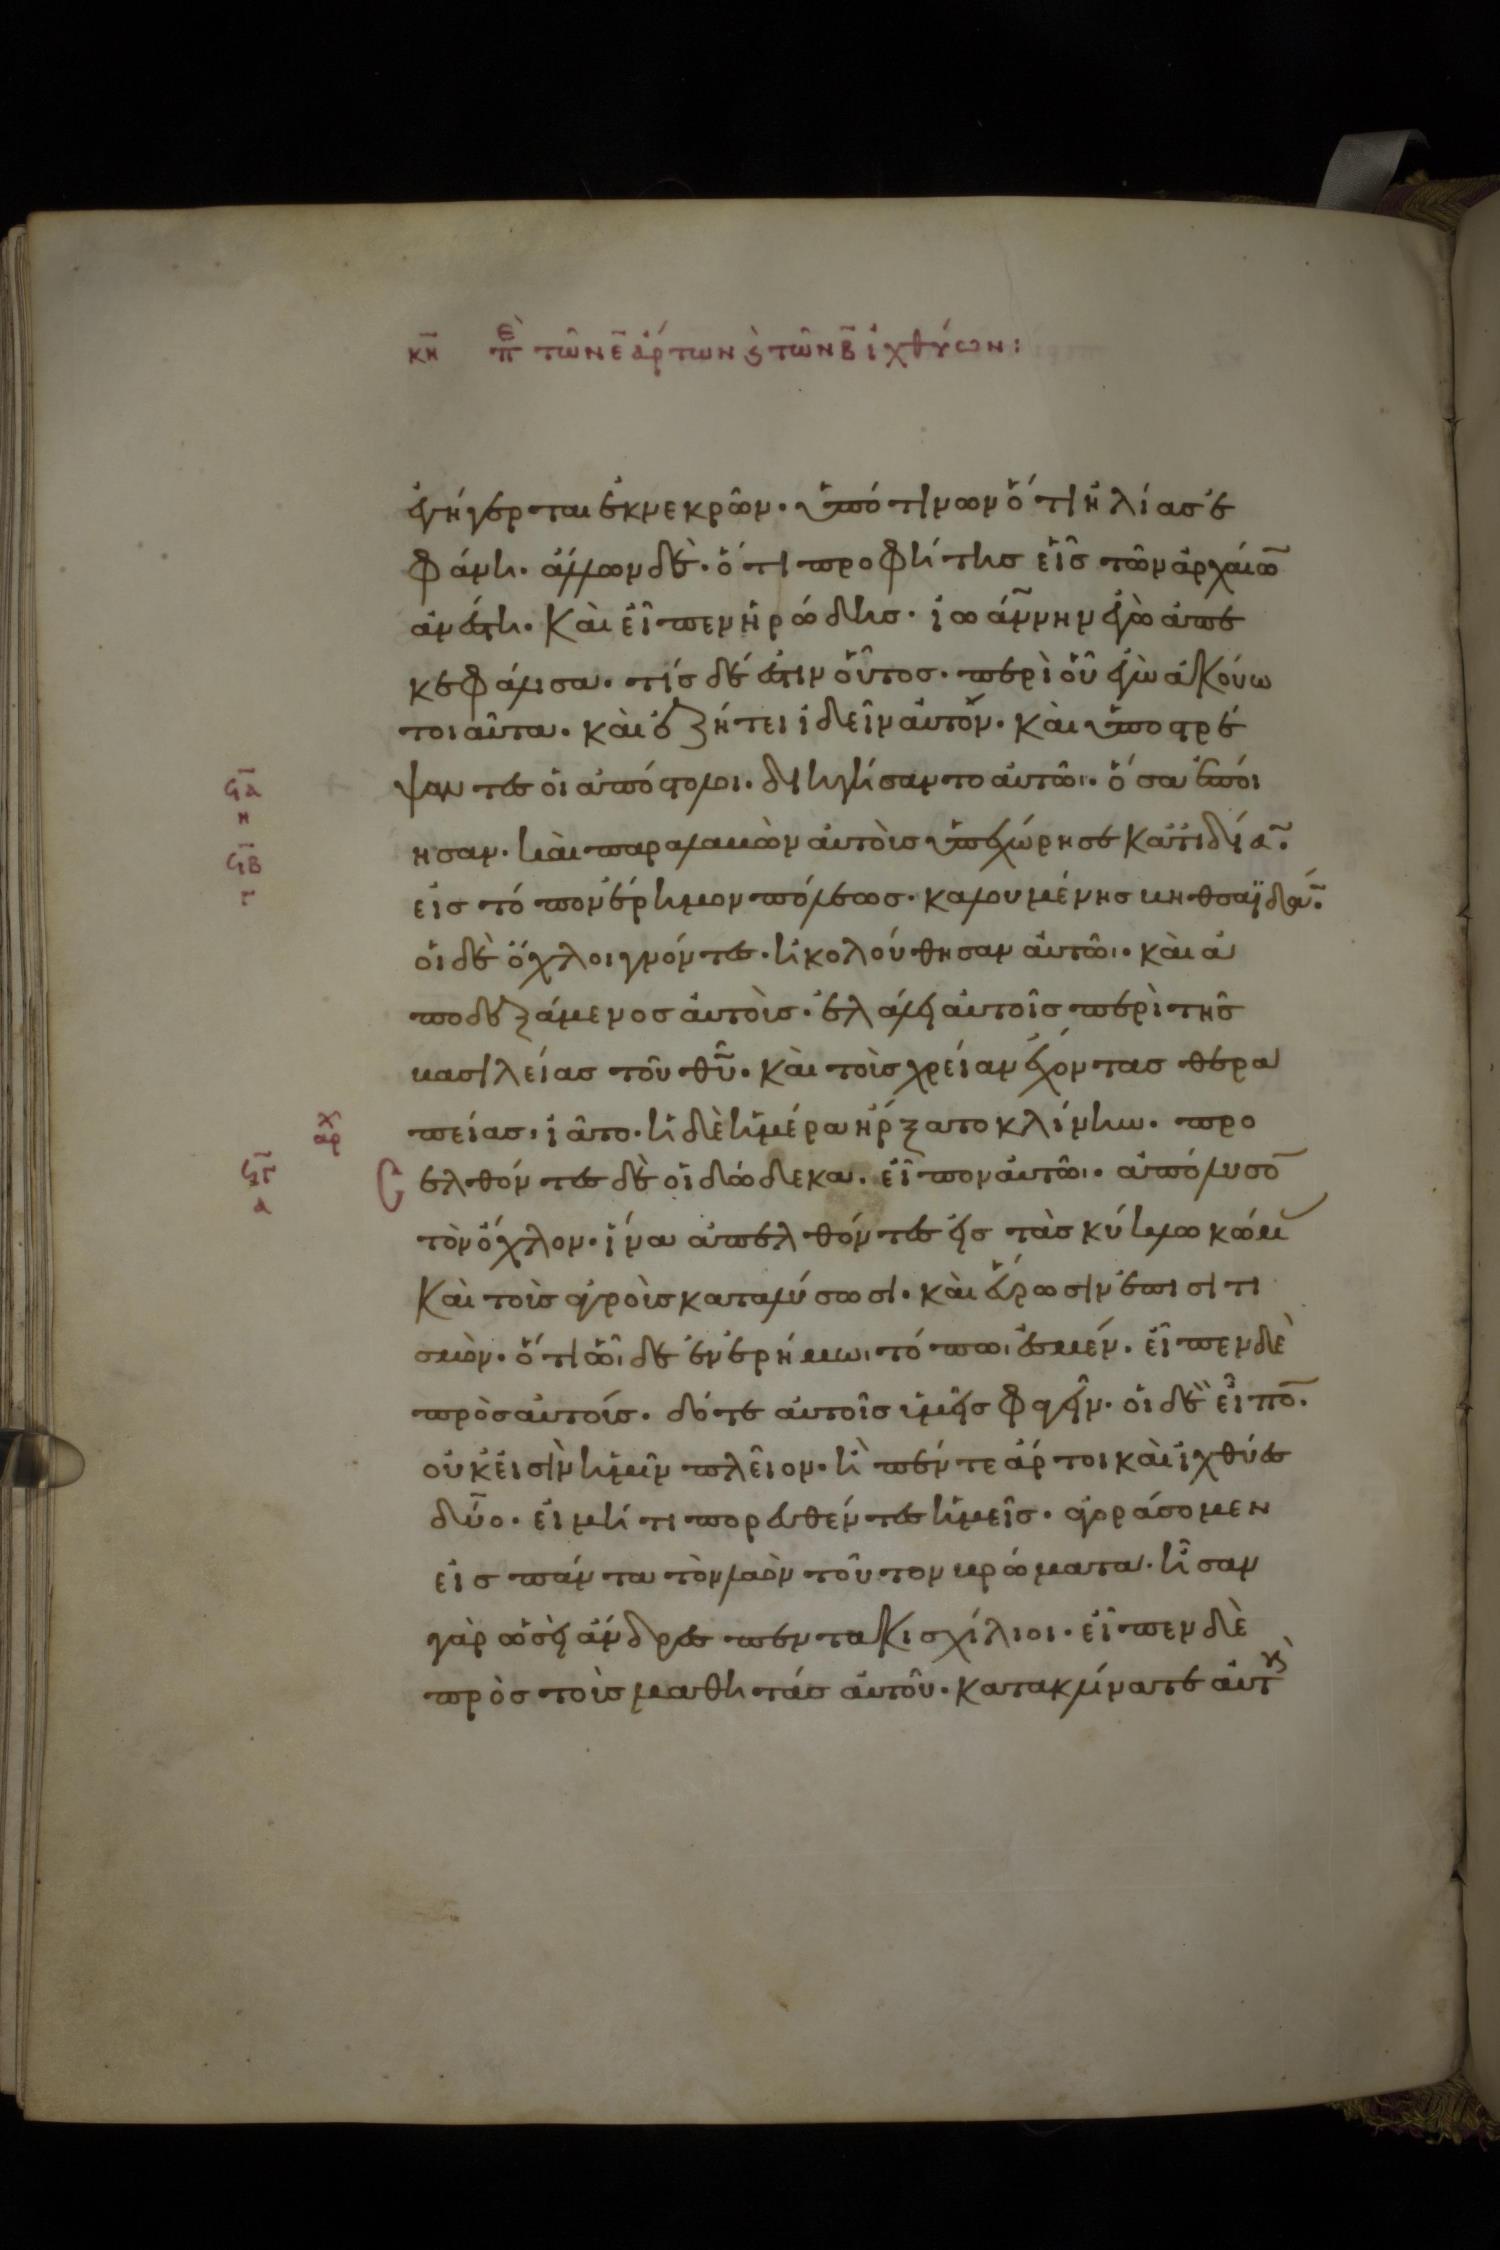 κη περὶ τῶν ε ἄρτων ϗ τῶν β ἰχθύων:
ἐγήγερται ἐκ νεκρῶν. ὑπό τινων ὅτι ἠλίας ἐ
φάνη. ἄλλων δὲ. ὅτι προφήτης εἷς τῶν ἀρχαίω̅
ἀνέστη. Καὶ εἶπεν ἡρώδης. ἰωάννην ἐγὼ ἀπε
κεφάλισα. τίς δέ ἐστιν οὗτος. περὶ οὗ ἐγὼ ἀκούω
τοιαῦτα. καὶ ἐζήτει ἰδεῖν αὐτόν. καὶ ὑποστρέ
ψαντες οἱ ἀπόστολοι. διηγήσαντο αὐτῶι. ὅσα ἐποί
ησαν. καὶ παραλαβὼν αὐτοὺς ὑπεχώρησε κατἰδία̅.
εἰς τόπον ἔρημον πόλεως. καλουμένης βηθσαϊδά̅.
οἱ δὲ ὄχλοι γνόντες. ἠκολούθησαν αὐτῶι. καὶ ἀ
ποδεξάμενος αὐτοὺς. ἐλάλει αὐτοῖς περὶ τῆς
βασιλείας τοῦ θῦ. καὶ τοὺς χρείαν ἔχοντας θερα
πείας, ἰᾶτο. ἡ δὲ ἡμέρα ἤρξατο κλίνειν. προ
ϟα
η
ϟβ
ι
χ
αρ
ϟγ
α
ελθόντες δὲ οἱ δώδεκα. εἶπον αὐτῶι. ἀπόλυσο̅
τὸν ὄχλον. ἵνα ἀπελθόντες εἰς τὰς κύκλω κώμ
Καὶ τοὺς ἀγροὺς καταλύσωσι. καὶ εὕρωσιν ἐπισιτι
σμὸν. ὅτι ὧδε ἐν ἐρήμωι τόπωι ἐσμέν. εἶπεν δὲ
πρὸς αὐτούς. δότε αὐτοῖς ὑμεῖς φαγεῖν. οἱ δὲ εἶπο̅.
οὐκ εἰσὶν ἡμῖν πλεῖον. ἢ πέντε ἄρτοι καὶ ἰχθύες
δύο. εἰ μή τι πορευθέντες ἡμεῖς. ἀγοράσομεν
εἰς πάντα τὸν λαὸν τοῦτον βρώματα. ἦσαν
γὰρ ὡσεὶ ἄνδρες πεντακισχίλιοι. εἶπεν δὲ
πρὸς τοὺς μαθητάς αὐτοῦ. κατακλίνατε αὐτȣ̀